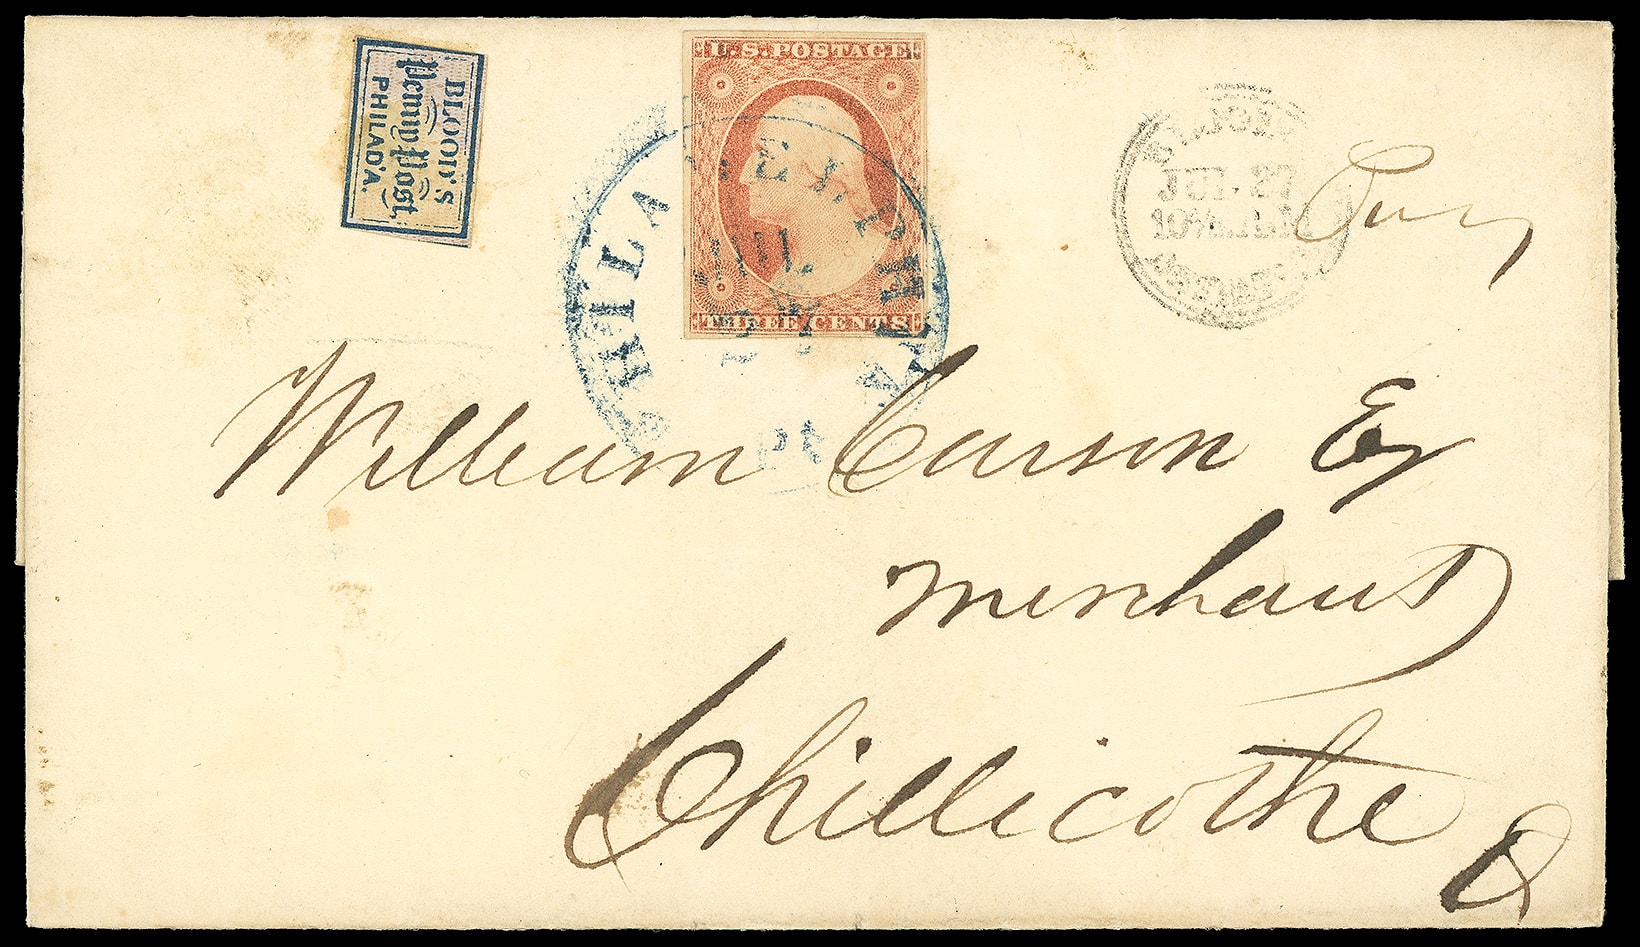 BLOOD'S
Penny Post,
PHILAD'A.
U.S. POSTAGE
THREE CENTS
PHILADELPHIA
JUL
PA
JUL 27
William Carson Esq
merchant
Chillicothe
O